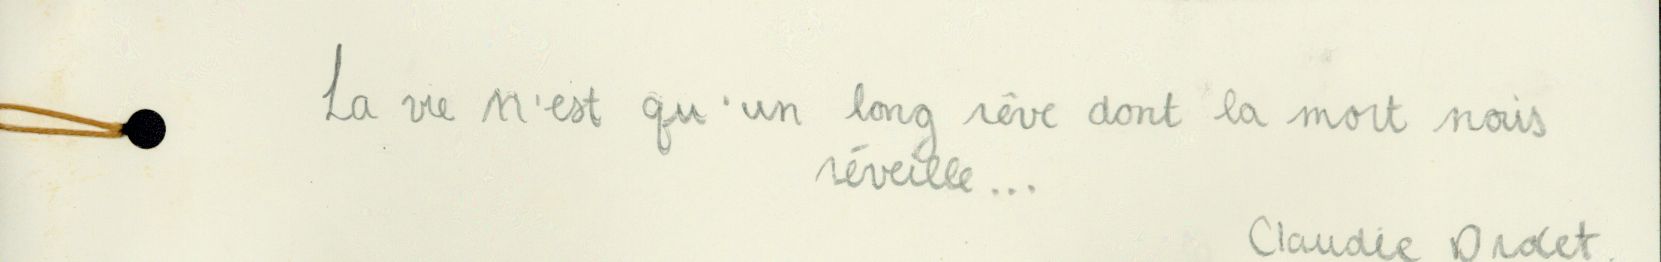 La vie n'est qu'un long rêve dont la mort nous
réveille...
Claudie Drolet.